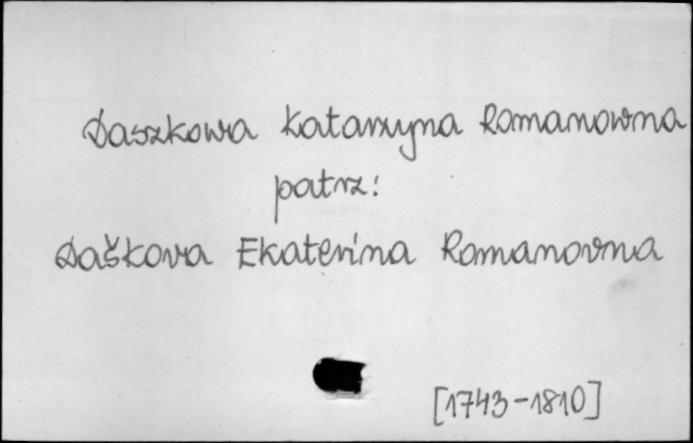 Daszkowa Katarzyna Romanowna
patrz:
Daškova Ekaterina Romanovna
[1743-1810]